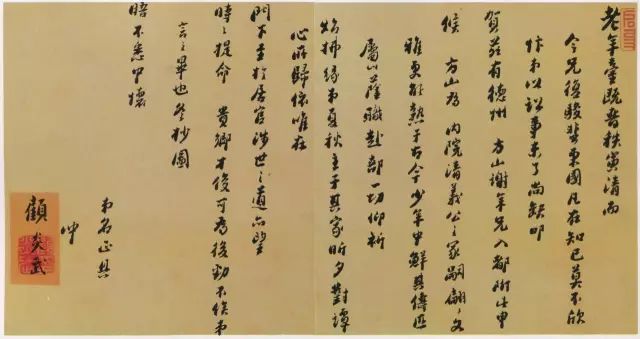 老年臺既晉秩寅清而
令兄復駿蜚東國凡在知己莫不欣
忭弟以訟事未了尚缺叩
賀茲有德州 方山謝年兄入都附此申
候 方山為 內院清義公之冢嗣翩翩文
雅更能熟于古今少年中鮮其儔匹
屬以蔭職赴部一切仰祈
炤拂緣弟夏秋主于其家昕夕對譚
心所歸依唯在
門下至於居官涉世之道亦望
時時提命 貴鄉才俊可為後勁不俟弟
言之畢也冬杪圖
晤不悉中懷
弟名正具
冲
顧炎武